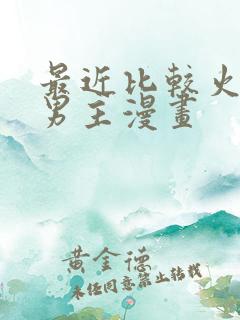 最近比較火
男主漫畫
黃金德
未经同意禁止转载